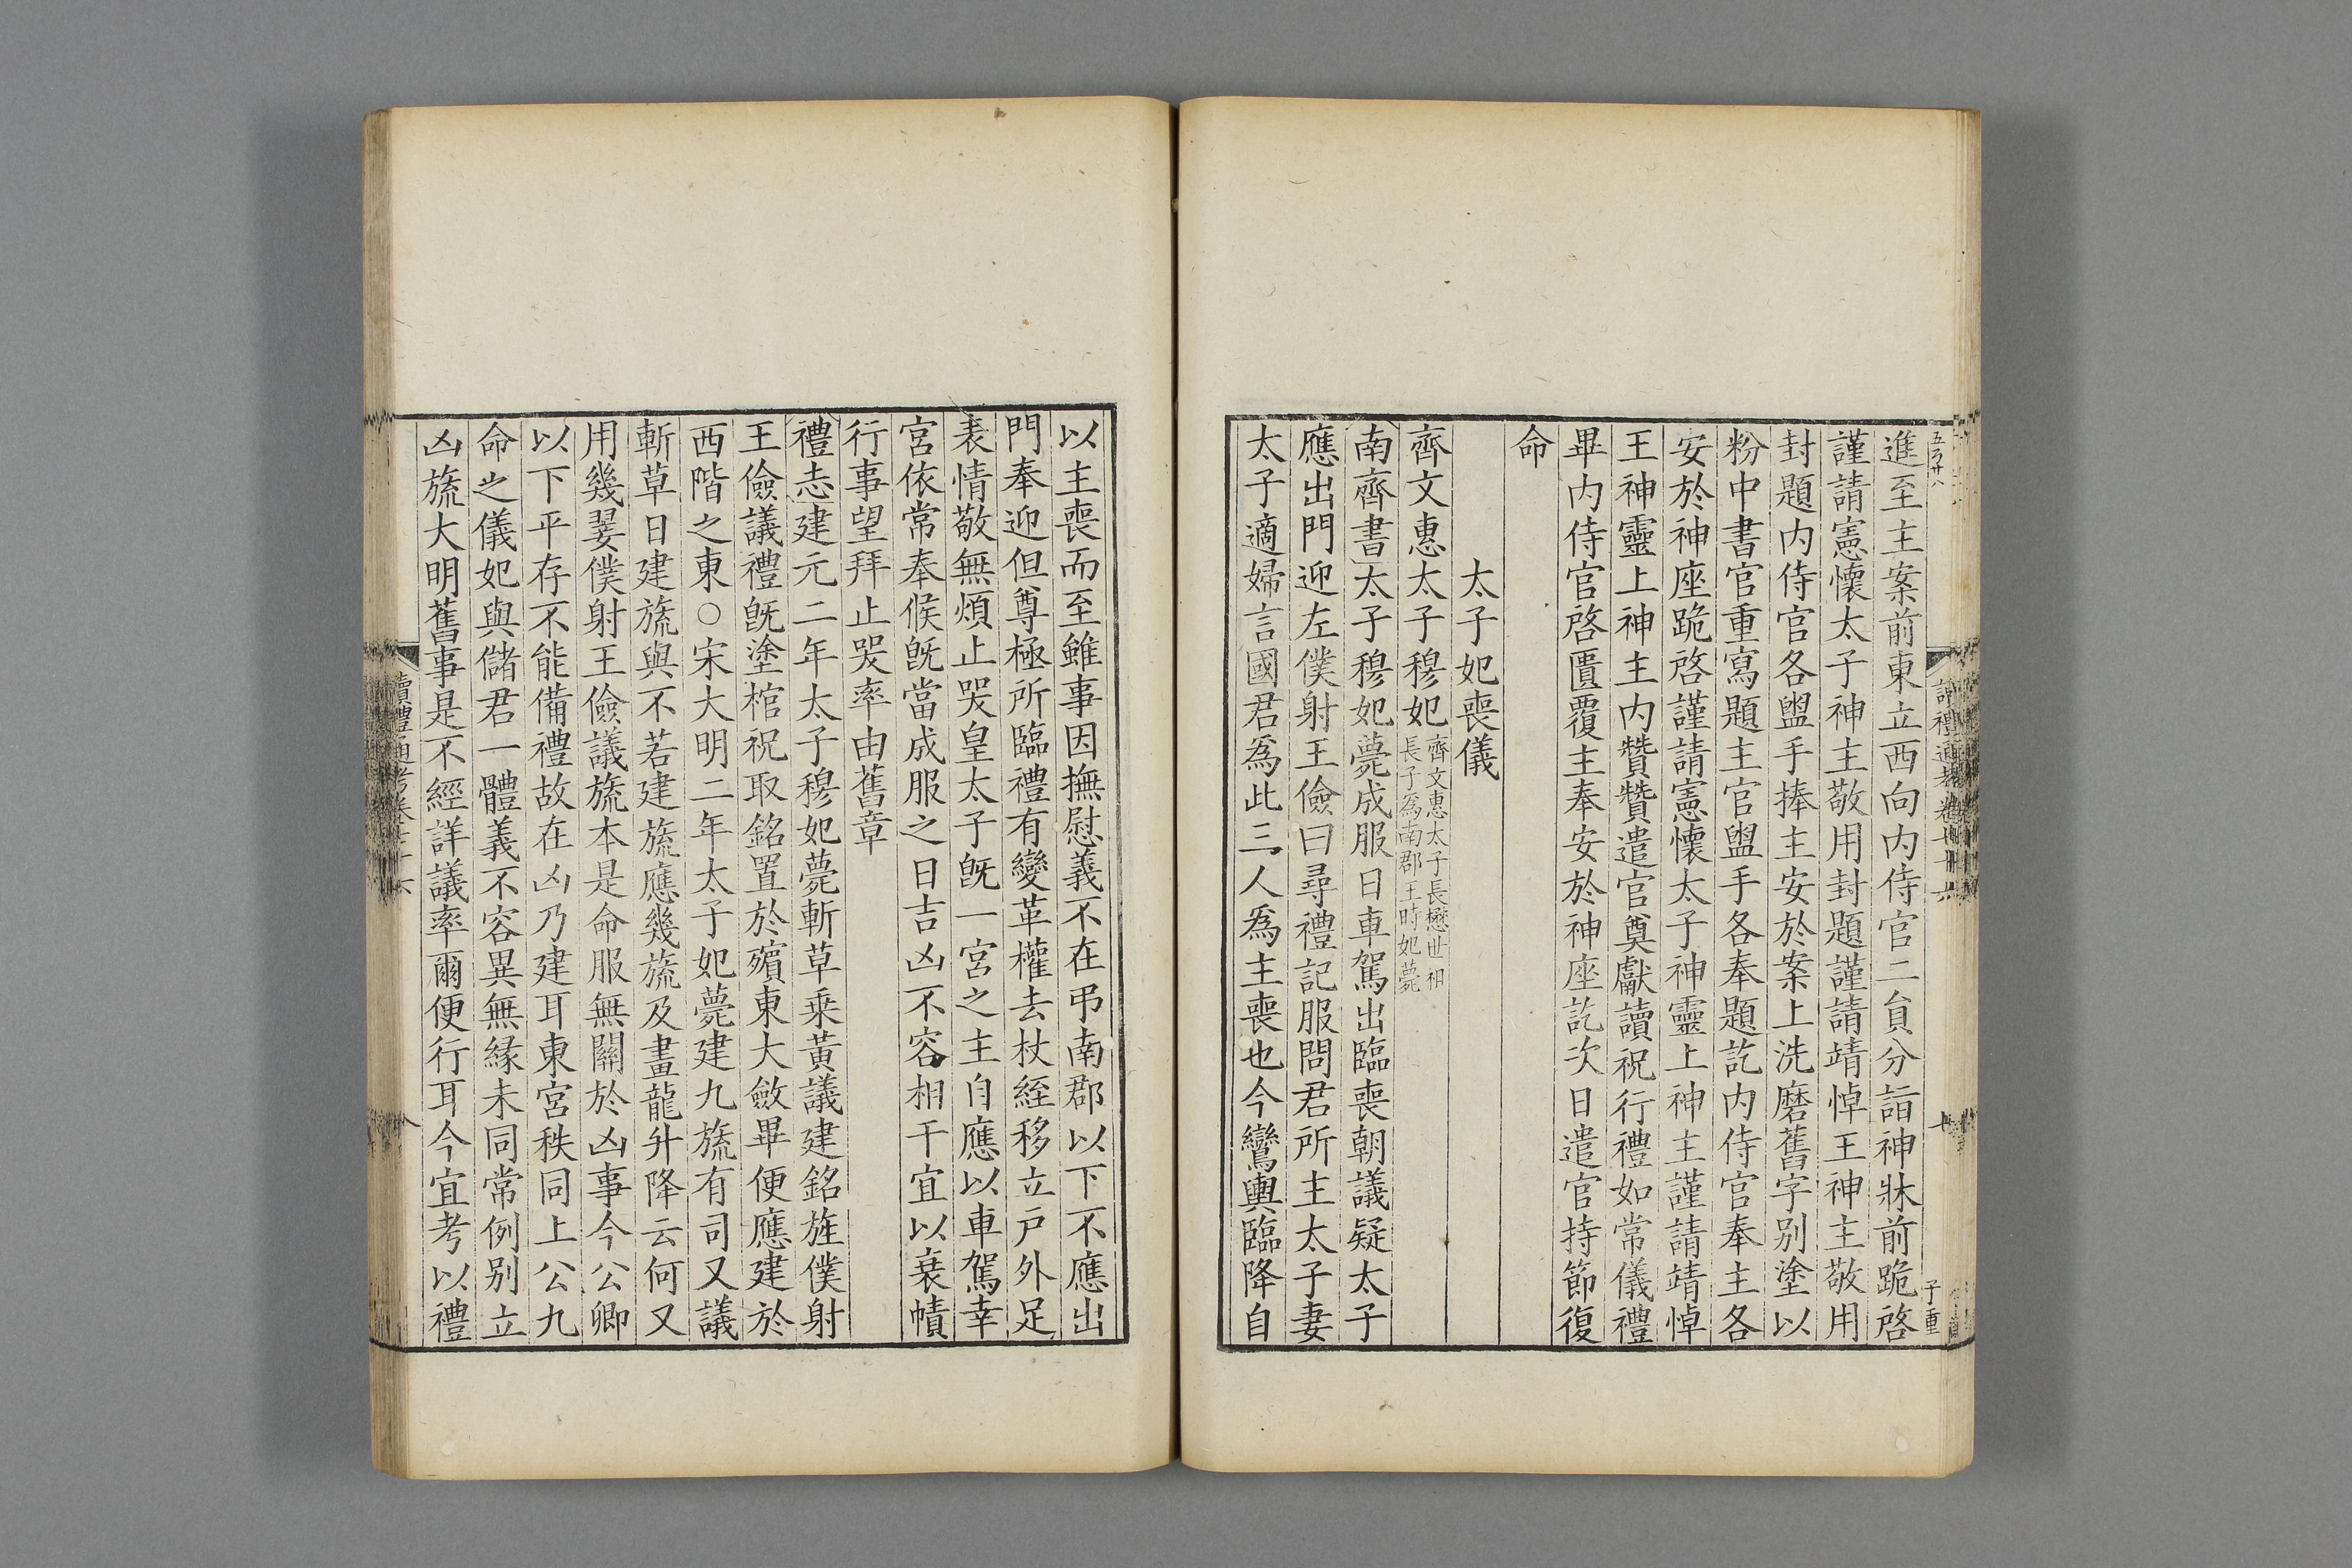 進至主案前東立西向内侍官二員分詣神牀前跪啓
謹請憲懷太子神主敬用封題謹請靖悼王神主敬用
封題内侍官各盥手捧主安於案上洗磨舊字別塗以
粉中書官重寫題主官盥手各奉題訖内侍官奉主各
安於神座跪啓謹請憲懷太子神靈上神主謹請靖悼
王神靈上神主内贊贊遣官奠獻讀祝行禮如常儀禮
畢内侍官啓匱覆主奉安於神座訖次日遣官持節復
命
太子妃喪儀
齊文惠太子穆妃齊文惠太子長懋世祖長子爲南郡王時妃薨
南齊書太子穆妃薨成服日車駕出臨喪朝議疑太子
應出門迎左僕射王儉曰尋禮記服問君所主太子妻
太子適婦言國君爲此三人爲主喪也今鸞輿臨降自
以主喪而至雖事因撫慰義不在弔南郡以下不應出
門奉迎但尊極所臨禮有變革權去杖絰移立戶外足
表情敬無煩止哭皇太子旣一宮之主自應以車駕幸
宮依常奉候旣當成服之日吉凶不容相干宜以衰幘
行事望拜止哭率由舊章
禮志建元二年太子穆妃薨斬草乗黃議建銘旌僕射
王儉議禮旣塗棺祝取銘置於殯東大斂畢便應建於
西階之東○宋大明二年太子妃薨建九旒有司又議
斬草日建旒與不若建旒應幾旒及畫龍升降云何又
用幾翣僕射王儉議旒本是命服無關於凶事今公卿
以下平存不能備禮故在凶乃建耳東宮秩同上公九
命之儀妃與儲君一體義不容異無緣未同常例別立
凶旒大明舊事是不經詳議率爾便行耳今宜考以禮
讀禮通考卷